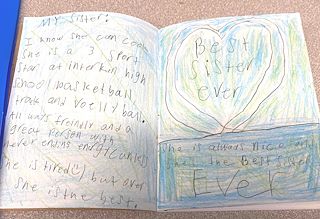 My Sister:
I know she can cook
she is a 3 sport
star at interkin high
school basketball
track and voellyball.
All ways freindly and a
great person with
never ending energy (unless
she is tired :) but over
She is the best.
Best
sister
ever
she is always Nice and
she's the Best sister
Ever